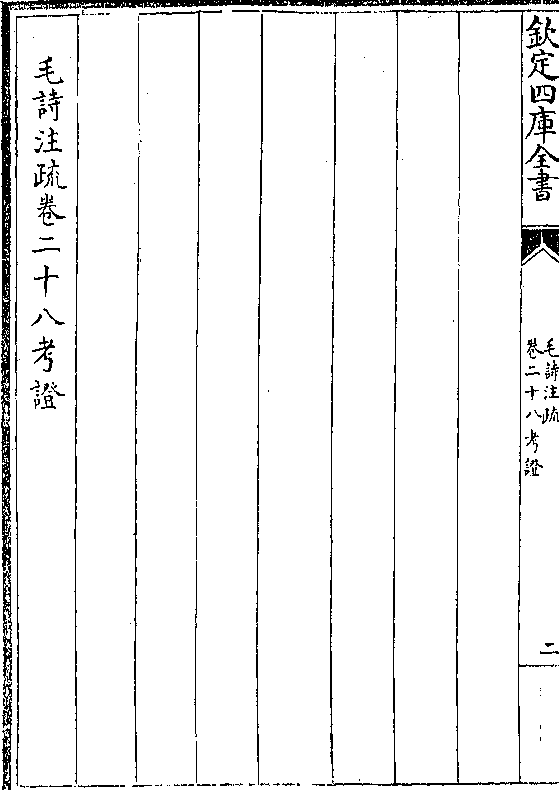 欽定四庫全書
毛詩注疏
卷二十八考證
二
毛詩注疏卷二十八考證